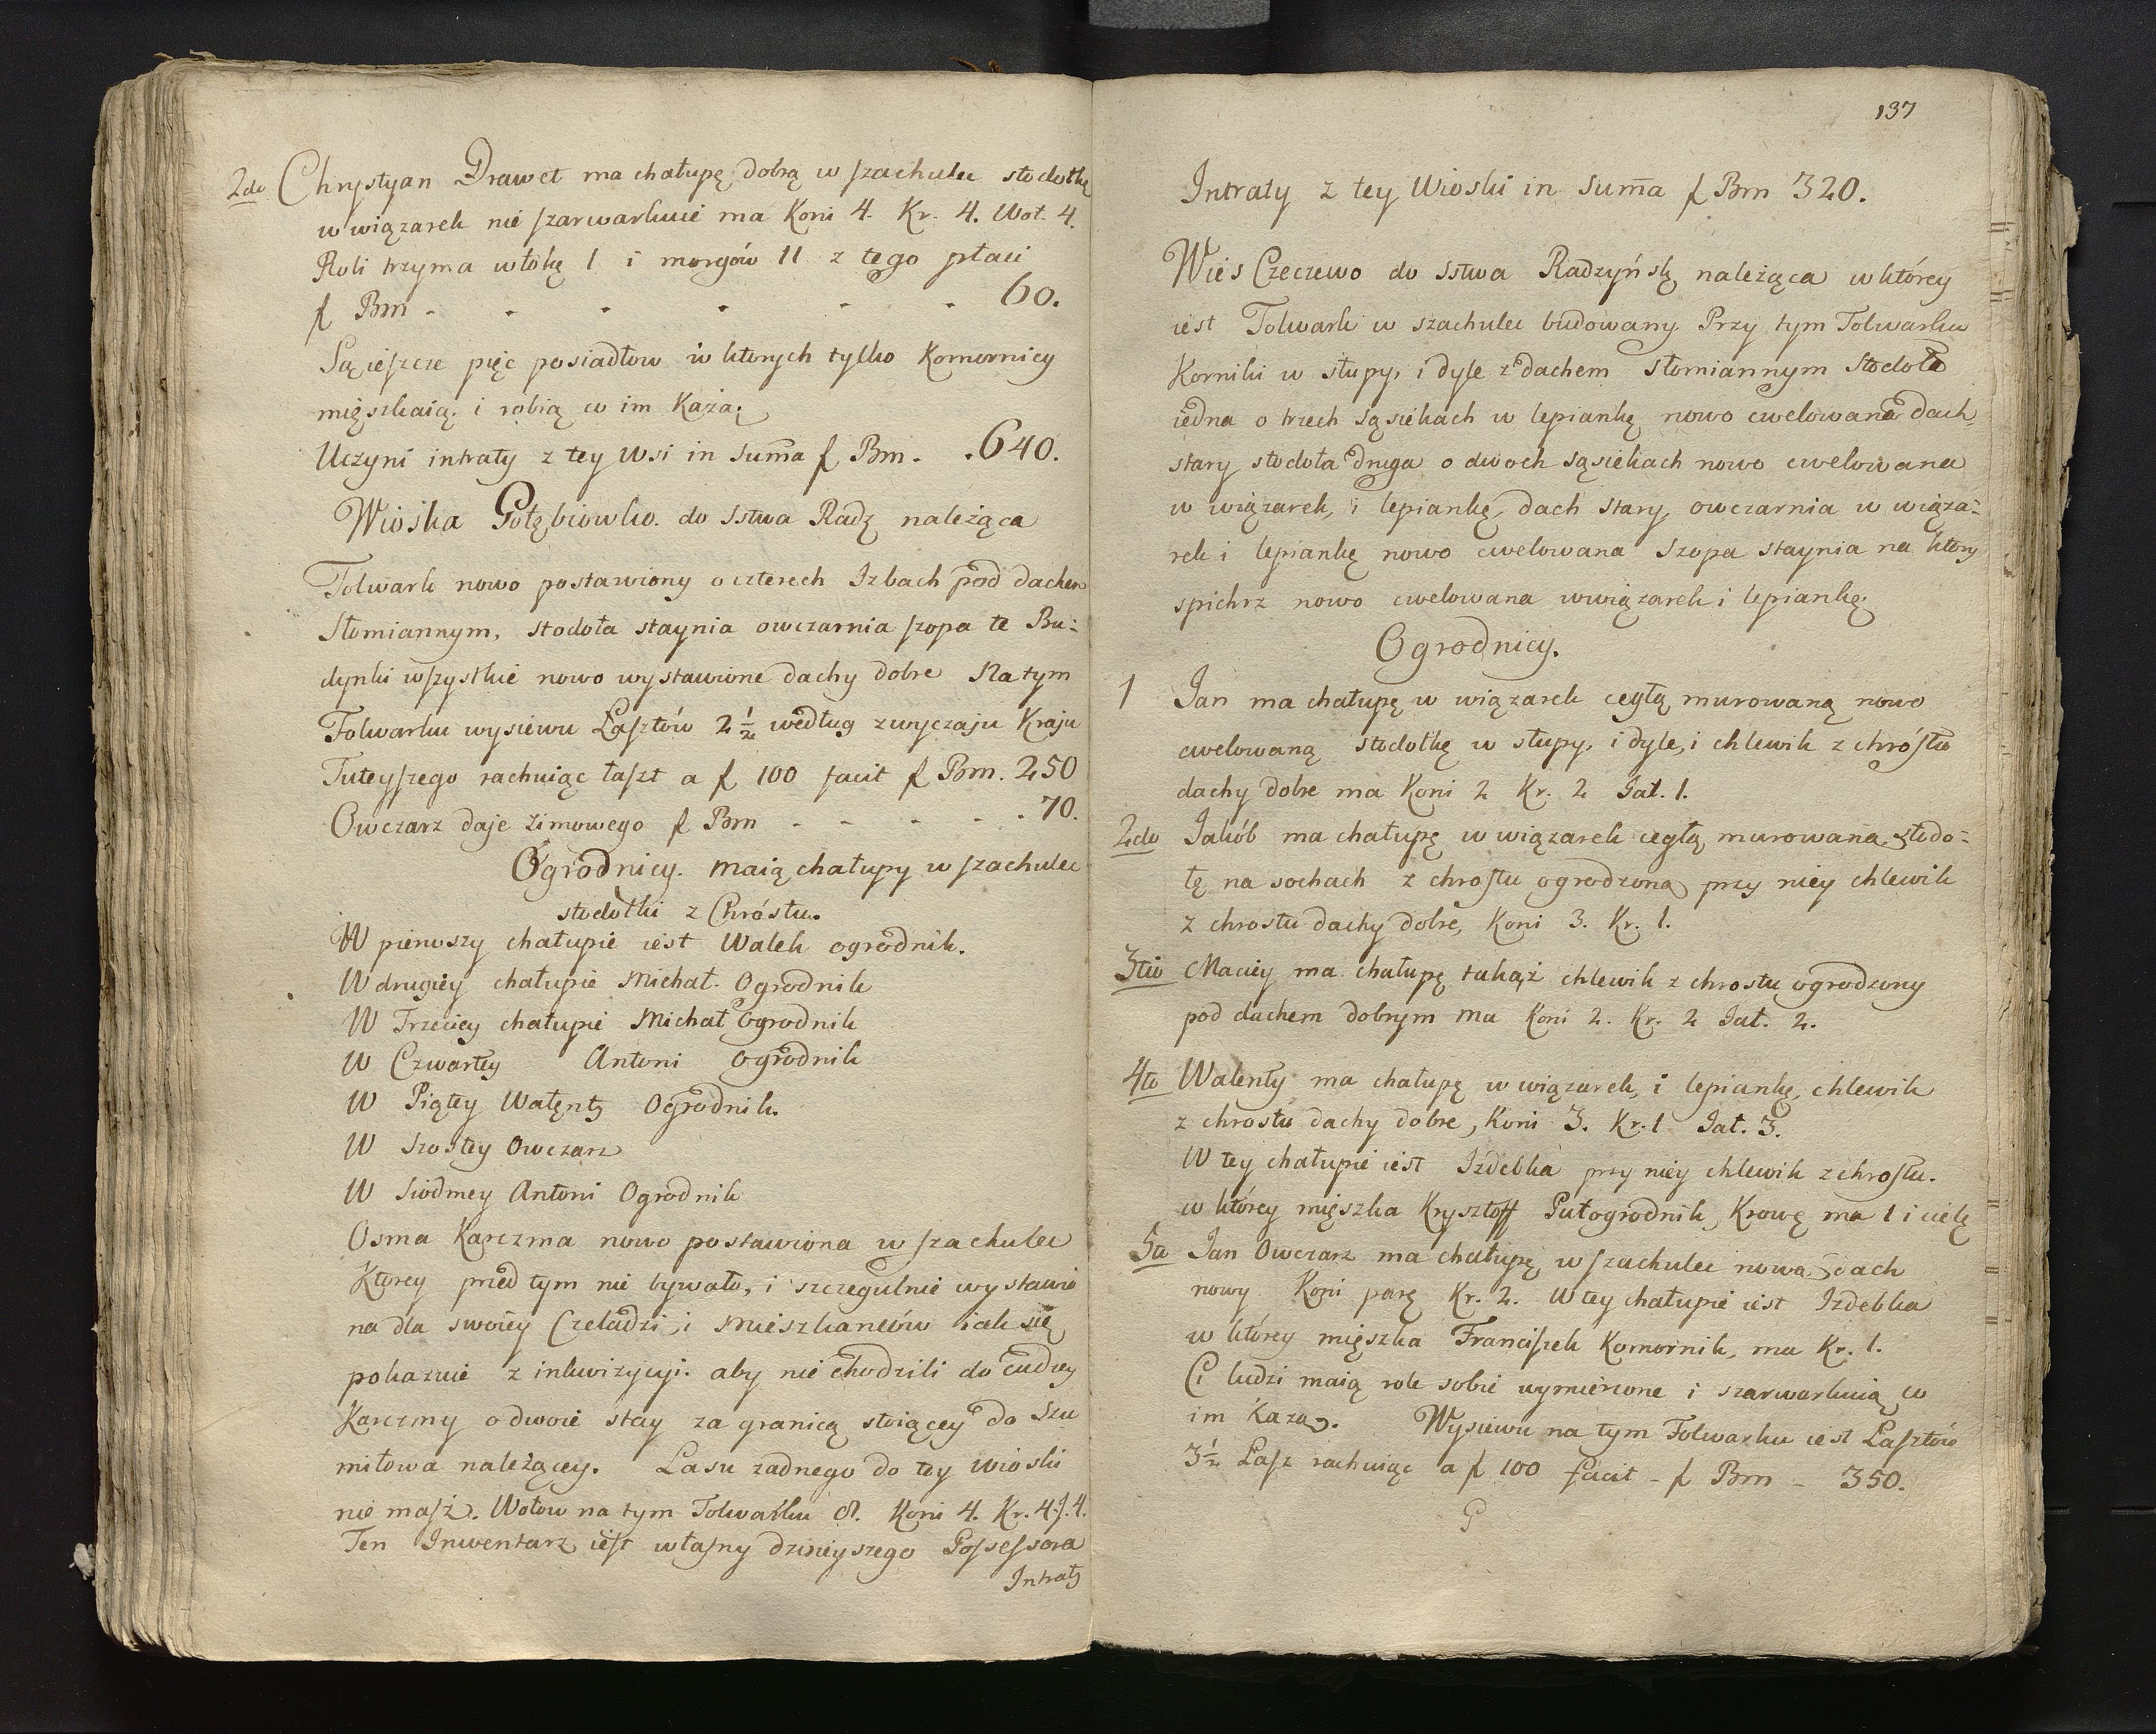 2do Chrystyan Drawet ma chałupę dobrą w szachulec stodołkę
w wiązarek nie szarwarkuie ma Koni 4. Kr. 4. Woł. 4.
Roli trzyma włokę 1 i morgów 11 z tego płaci
f Prn - - - - - - 60.
Są ieszcze pięc posiadłow w ktorych tylko Komornicy
mięszkaią i robią co im Każą.
Uczyni intraty z tey Wsi in Suma f Prn. . 640.
Wioska Gołębiowko do Sstwa Radz należąca
Folwark nowo postawiony o czterech Izbach pod dachem
Słomiannym, stodoła staynia owczarnia szopa te Bu:
dynki wszystkie nowo wystawione dachy dobre Na tym
Folwarku wysiewu Łasztów 2 1/2 według zwyczaju Kraju
Tuteyszego rachuiąc łaszt a f 100 facit f Prn. 250
Owczarz daje zimowego f Prn - - - - . 70.
Ogrodnicy. maią chałupy w szachulec
stodołki z Chróstu.
W pierwszy chałupie iest Walek ogrodnik.
W drugiey chałupie Michał. Ogrodnik
W Trzeciey chałupie Michał Ogrodnik
W Czwartey Antoni Ogrodnik
W Piątey Walęnty Ogrodnik.
W Szostey Owczarz
W Siodmey Antoni Ogrodnik
Osma Karczma nowo postawiona w szachulec
Ktorey przed tym nie bywało, i szczegulnie wystawio
na dla swoiey Czeladzi, i Mieszkancow iak się
pokazuie z inkwizycyi. aby nie chodzili do cudzey
Karczmy o dwoie stay za granicą stoiącey do Szu
miłowa należącey. Lasu zadnego do tey wioski
nie masz. Wołow na tym Folwarku 8. Koni 4. Kr. 4. J. 4.
Ten Inwentarz iest własny dzisieyszego Possessora
Intraty
137
Intraty z tey Wioski in Suma f Prn 320.
Wies Czeczewo do Sstwa Radzyńsk należąca w którey
iest Folwark w szachulec budowany. Przy tym Folwarku
Korniki w słupy, i dyle z dachem Słomiannym Stodoła
iedna o trzech sąsiekach w lepiankę nowo cwelowana dach
stary stodoła druga o dwoch sąsiekach nowo cwelowana
w wiązarek, i lepiankę, dach stary, owczarnia w wiąza:
rek i lepiankę nowo cwelowana Szopa staynia na ktory
spichrz nowo cwelowana w wiązarek i lepiankę.
Ogrodnicy.
1 Jan ma chałupę w wiązarek cegłą murowaną nowo
cwelowaną stodołkę w słupy, i dyle, i chlewik z chróstu
dachy dobre ma Koni 2 Kr. 2 Jał. 1.
2do Jakób ma chałupę w wiązarek cegłą murowana, stodo:
łę na sochach z chrostu ogrodzoną przy niey chlewik
z chrostu dachy dobre, Koni 3. Kr. 1.
3tio Maciey ma chałupę takąż chlewik z chrostu ogrodzony
pod dachem dobrym ma Koni 2. Kr. 2 Jał. 2.
4to Walenty ma chałupę w wiązarek, i lepiankę, chlewik
z chrostu dachy dobre, Koni 3. Kr. 1 Jał. 3.
W tey chałupie iest Izdebka przy niey chlewik z chrostu.
w którey mięszka Krysztoff Pułogrodnik, Krowę ma 1 i cielę
5ta Jan Owczarz ma chałupę w szachulec nową dach
nowy Koni parę Kr. 2. W tey chałupie iest Izdebka
w którey mięszka Franciszek Komornik, ma Kr. 1.
Ci ludzi maią role sobie wymierzone i szarwarkuią co
im Kazą. Wysiewu na tym Folwarku iest Łasztów
3 1/2 Łasz rachuiąc a f 100 facit - f Prn - 350.